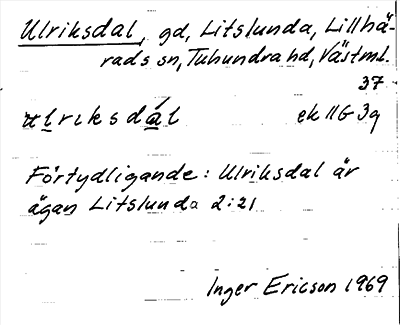 Ulriksdal, gd, Litslunda, Lillhä-
rads sn, Tuhundra hd, Västml.
37
ulriksdál ek 11G 3g
Förtydligande: Ulriksdal är
ägan Litslunda 2:21.
Inger Ericson 1969